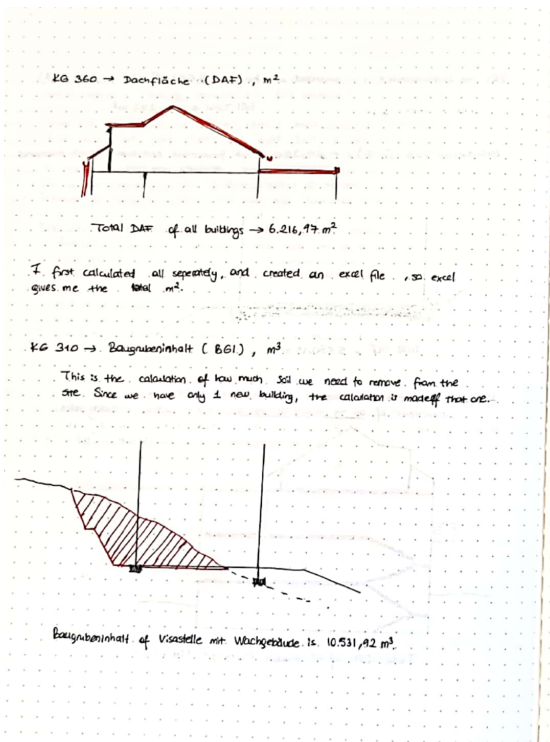 KG 360 → Dachfläche (DAF), m²
Total DAF of all buildings → 6.216,97 m²
I first calculated all seperately, and created an excel file, so excel
gives me the total m².
KG 310 → Baugrubeninhalt (BGI), m³
This is the calculation of how much soil we need to remove from the
site. Since we have only 1 new building, the calculation is made off that one.
Baugrubeninhalt of Visastelle mit Wachgebäude is 10.531,92 m³.